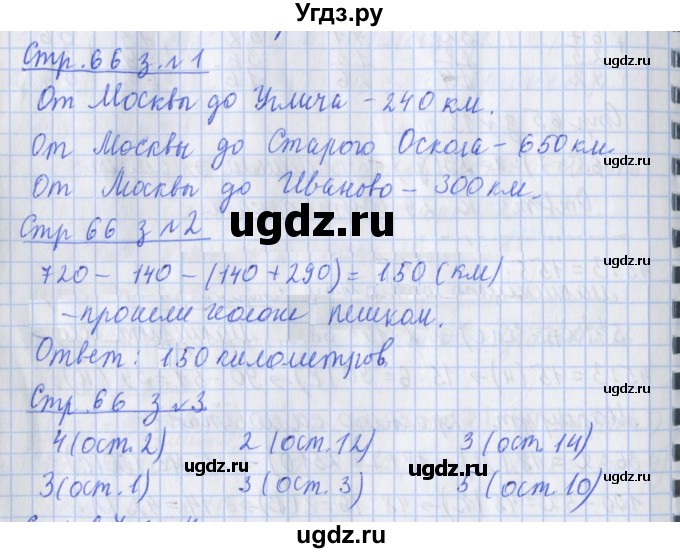 Угдз.ру
Стр. 66 з. №1
ugdz.ru
От Москвы до Углича - 240 км.
ugdz.ru
От Москвы до Старого Оскола - 650 км
От Москвы до Иваново - 300 км.
ugdz.ru
Стр 66 з №2
ugdz.ru
720 - 140 - (140 + 290) = 150 (км)
ugdz.ru
- прошли пешком.
Ответ: 150 километров.
ugdz.ru
Стр. 66 з №3.
4 (ост. 2) 2 (ост. 12) 3 (ост. 14)
ugdz.ru ugdz.ru
3 (ост. 1) 3 (ост. 3) 5 (ост. 10)
ugdz.ru
ugdz.ru